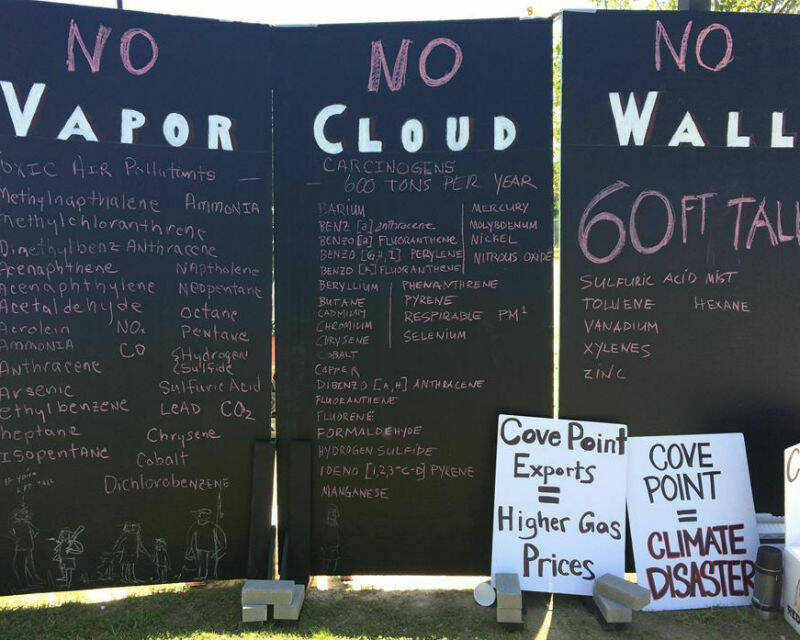 NO
VAPOR
OXIC AIR POLLUTANTS
Methylnapthalene AMMONIA
Methylchloranthrene
Dimethylbenz Anthracene
Acenaphthene NApthalene
Acenaphthylene Neopentane
Acetaldehyde Octane
Acrolein NOx Pentane
AMMONIA CO Hydrogen
Sulfide
Anthracene
Arsenic Sulfuric Acid
ethylbenzene LeAD CO2
heptane Chrysene
Isopentane Cobalt
Dichlorobenzene
NO
CLOUD
CARCINOGENS
600 TONS PER YEAR
BARIUM MERCURY
BENZ [a] anthracene MOLYBDENUM
BENZO [a] FLUORANTHENE NICKEL
BENZO [G,H,I] PERYLENE NITROUS OXIDE
BENZO [K] FLUORANTHENE
BERYLLIUM PHENANTHRENE
BUTANE PYRENE
CADMIUM RESPIRABLE PM
CHROMIUM SELENIUM
CHRYSENE
COBALT
COPPER
DIBENZO [A,H] ANTHRACENE
FLUORANTHENE
FLUORENE
FORMALDEHYDE
HYDROGEN SULFIDE
IDENO [1,2,3-C-D] PYLENE
MANGANESE
NO
WALL
60 FT TALL
SULFURIC ACID MIST
TOLUENE HEXANE
VANADIUM
XYLENES
ZINC
Cove Point
Exports
=
Higher Gas
Prices
COVE
POINT
=
CLIMATE
DISASTER